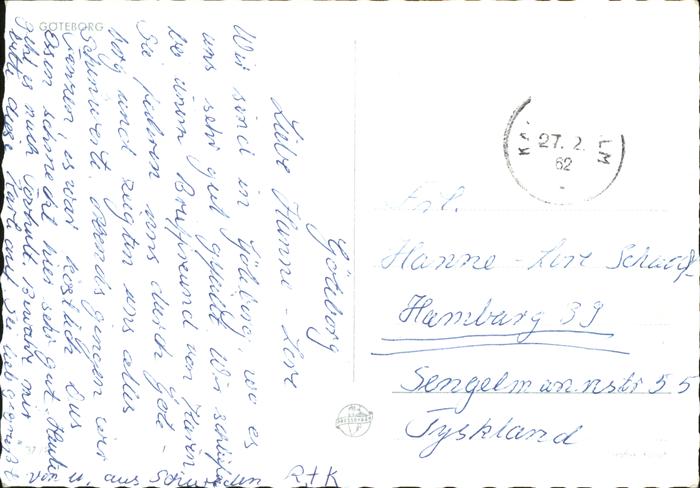 GÖTEBORG
Göteborg
Liebe Hanne-Lore
Wir sind in Göteborg, wo es
uns sehr gut gefällt. Wir schlafen
bei einem Brieffreund von Karen.
Sie fuhren uns durch Göte-
borg und zeigten uns alles
Sehenswerte. Abends gingen wir
tanzen, es war köstlich. Das
Essen schmeckt hier sehr gut. Heute
geht es nach
bitte diese Karte
von u. aus Schweden R+K
27. 2.
62
Frl.
Hanne-Lore Schaaf
Hamburg 39
Sengelmannstr 55
Tyskland